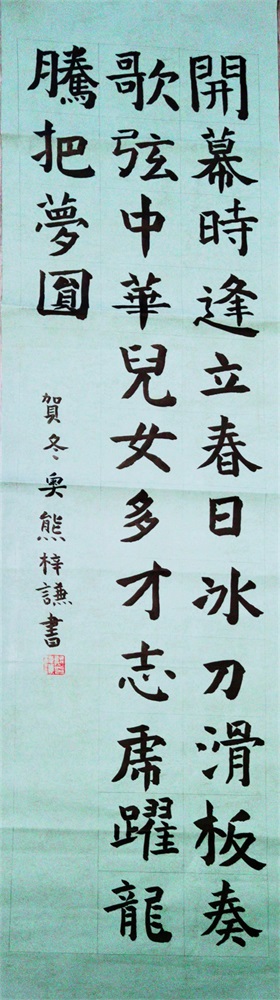 開幕時逢立春日冰刀滑板奏
歌弦中華兒女多才志虎躍龍
騰把夢圓
賀冬奧熊梓謙書